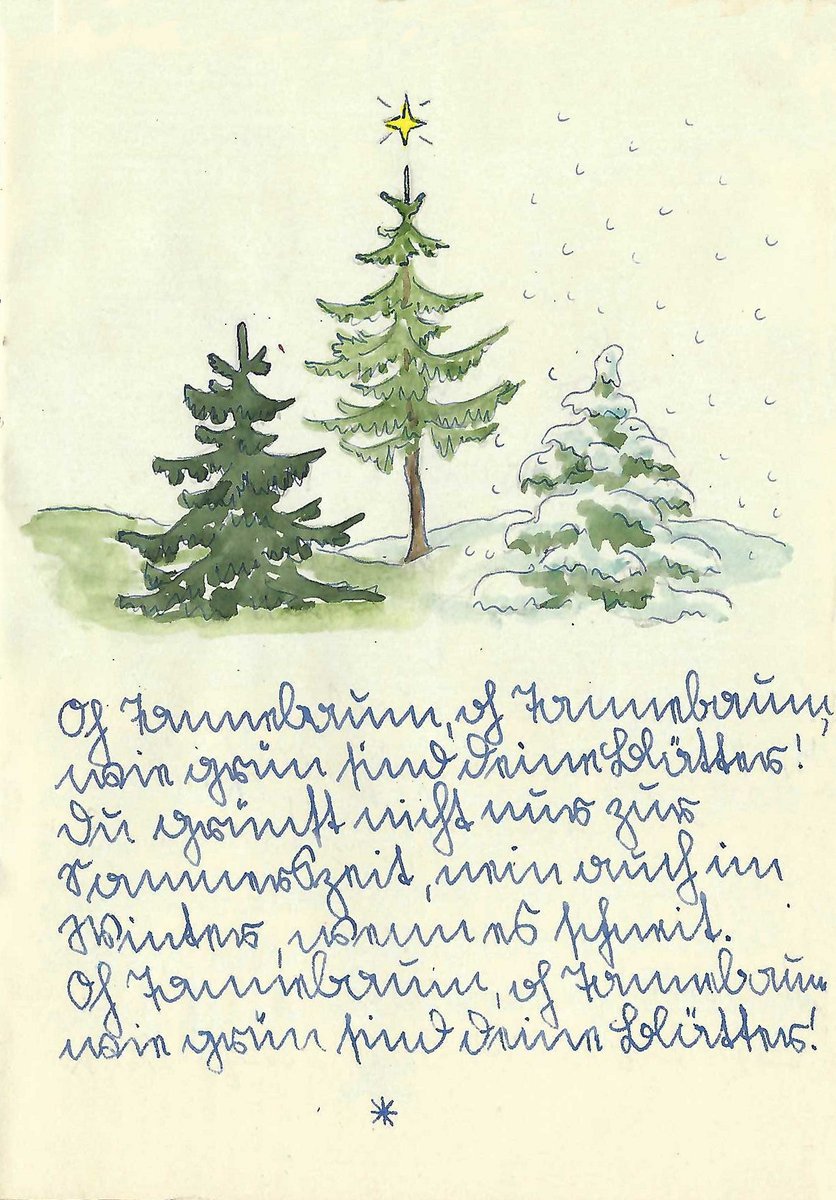 Oh Tannebaum, oh Tannebaum,
wie grün sind deine Blätter!
Du grünst nicht nur zur
Sommerszeit, nein auch im
Winter, wenn es schneit.
Oh Tannebaum, oh Tannebaum
wie grün sind deine Blätter!